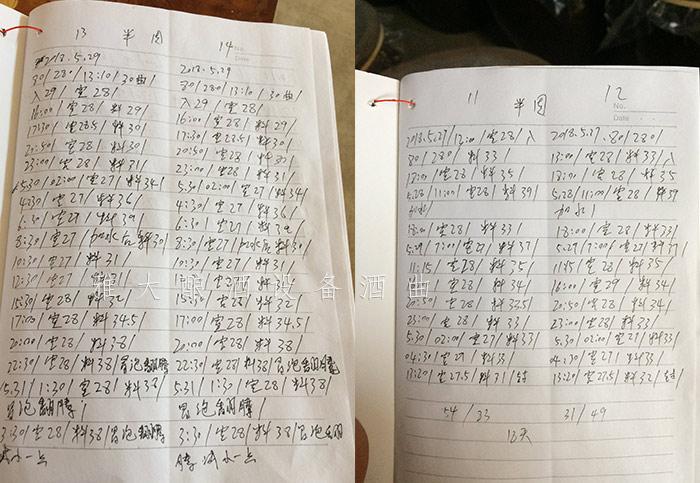 13 半周 14
No.
Date
2018.5.29
30/28/13:10/30曲/
入29/室28/
16:00/室28/料29/
17:30/室28.5/料30/
20:50/室28/料30/
23:00/室28/料31/
5.30/02:00/室27/料34/
4:30/室27/料36/
6:30/室27/料39/
8:30/室27/加水后料30/
10:30/室27/料31/
12:30/室27/料31/
15:30/室28/料32/
17:00/室28/料34.5/
20:00/室28/料38/
22:30/室28/料38/冒泡翻腾/
5.31/1:30/室28/料38/
冒泡翻腾/
3:30/室28/料38/冒泡翻腾
减小一点
2018.5.29
30/280/13:10/30曲/
入29/室28/
16:00/室28/料29/
17:30/室28.5/料30/
20:50/室28/料30/
23:00/室28/料31/
5.30/02:00/室27/料34/
4:30/室27/料36/
6:30/室27/料39/
8:30/室27/加水后料30/
10:30/室27/料31/
12:30/室27/料31/
15:30/室28/料32/
17:00/室28/料34.5/
20:00/室28/料38/
22:30/室28/料38/冒泡翻腾
5.31/1:30/室28/料38/
冒泡翻腾/
3:30/室28/料38/冒泡翻
腾 减小一点
11 半周 12
No.
Date
2018.5.27/12:00/室28/入
30/280/料33/
18:00/室28/料35/
5.28/11:00/室28/料39/
加水/
18:00/室28/料33/
5.29/7:00/室27/料37/
11:15/室28/料35/
料34/
20:50/室28/料33.5/
23:00/室28/料33/
5.30/02:00/室27/料33/
04:30/室27/料33/
13:20/室27.5/料31/
54/33
2018.5.27.30/280/
13:00/室28/料33/入
18:00/室28/料35
5.28/11:00/室28/料39
加水/
18:00/室28/料33/
5.29/7:00/室27/料37/
11:15/室28/料35/
16:00/室29/料34/
20:50/室28/料34/
23:00/室28/料33/
5.30/02:00/室27/料33/
04:30/室27/料33/
13:20/室27.5/料32/
31/49
12天
雅大酿酒设备酒曲